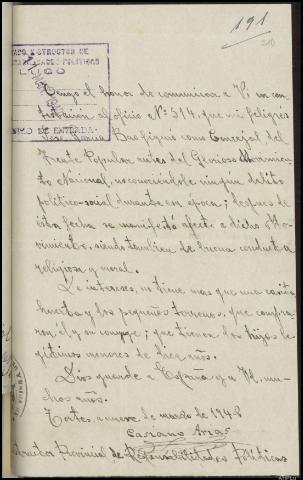 191
INSTRUCTOR DE
POLITICAS
LUGO
DE ENTRADA
Tengo el honor de comunicar a V. en con
testación al oficio Nº 514, que mi feligrés
José Bao figuró como Concejal del
Frente Popular antes del Glorioso Movimien
to Nacional, no conociéndole ningún delito
político-social durante esa época; después de
esta fecha se manifestó afecto a dicho Mo
vimiento, siendo también de buena conducta
religiosa y moral.
De intereses, no tiene mas que una casita
huerta y los pequeños terrenos, que compra
ron él y su conyuge; que tienen los hijos le
gítimos menores de diez años.
Dios guarde a España y a V. mu
chos años.
Torés, a nueve de marzo de 194
Casiano Arias
Provincial de Responsabilidades Políticas